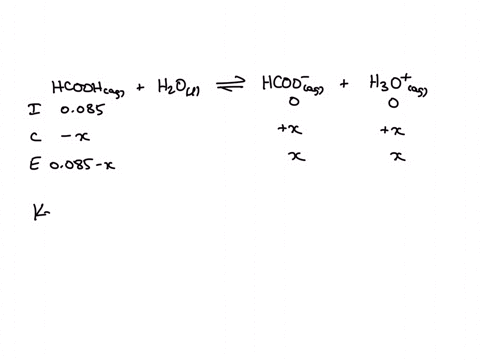 HCOOH(aq) + H2O(l) ⇌ HCOO⁻(aq) + H3O⁺(aq)
I 0.085 0 0
C -x +x +x
E 0.085-x x x
K